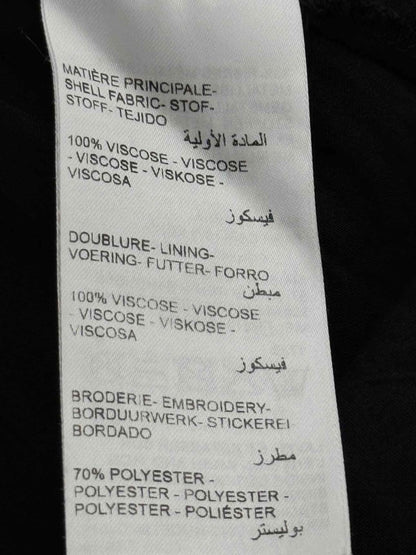 MATIÈRE PRINCIPALE-
SHELL FABRIC- STOF-
STOFF- TEJIDO
المادة الأولية
100% VISCOSE - VISCOSE
- VISCOSE - VISKOSE -
VISCOSA
فيسكوز
DOUBLURE- LINING-
VOERING- FUTTER- FORRO
مبطن
100% VISCOSE - VISCOSE
- VISCOSE - VISKOSE -
VISCOSA
فيسكوز
BRODERIE- EMBROIDERY-
BORDUURWERK- STICKEREI
BORDADO
مطرز
70% POLYESTER -
POLYESTER - POLYESTER -
POLYESTER - POLIÉSTER
بوليستر